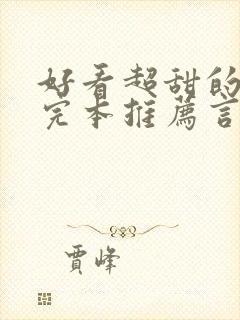 好看超甜的
完本推薦言
賈峰